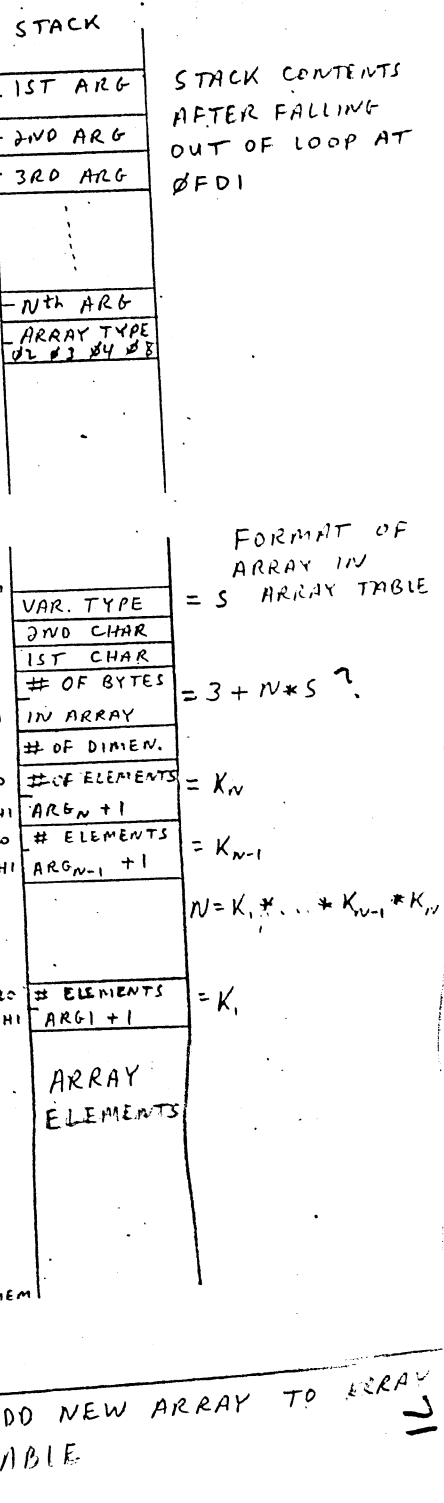 STACK
1ST ARG
2ND ARG
3RD ARG
Nth ARG
ARRAY TYPE
Ø2 Ø3 Ø4 Ø8
STACK CONTENTS
AFTER FALLING
OUT OF LOOP AT
ØFD1
FORMAT OF
ARRAY IN
ARRAY TABLE
VAR. TYPE = S
2ND CHAR
1ST CHAR
# OF BYTES = 3 + N*S ?
IN ARRAY
# OF DIMEN.
# OF ELEMENTS = K_N
HI ARG_N + 1
# ELEMENTS = K_N-1
HI ARG_N-1 + 1
N = K_1 * ... * K_N-1 * K_N
LO # ELEMENTS = K_1
HI ARG1 + 1
ARRAY
ELEMENTS
EM
DD NEW ARRAY TO ARRAY
ABLE